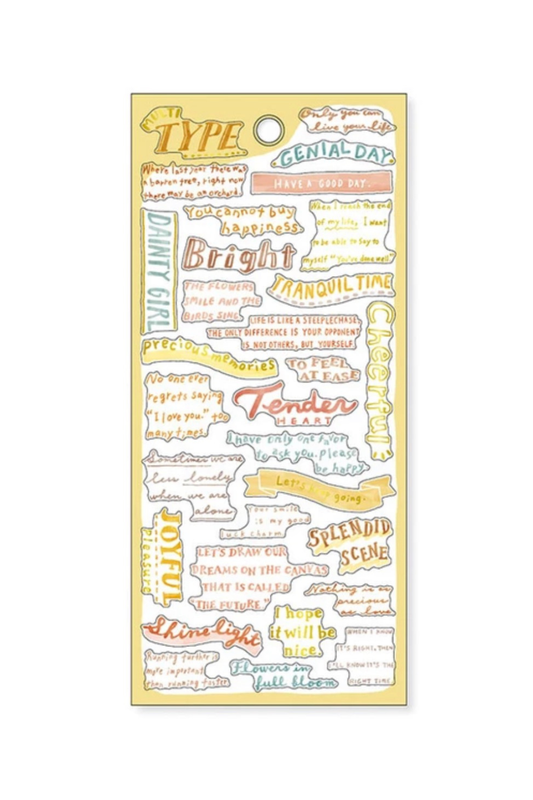 MULTI
TYPE
Only you can
live your life
GENIAL DAY
HAVE A GOOD DAY.
Where last year there was
a barren tree, right now
there may be an orchard
DAINTY GIRL
You cannot buy
happiness
When I reach the end
of my life, I want
to be able to say to
myself "You've done well"
Bright
TRANQUIL TIME
THE FLOWERS
SMILE AND THE
BIRDS SING
LIFE IS LIKE A STEEPLECHASE.
THE ONLY DIFFERENCE IS YOUR OPPONENT
IS NOT OTHERS, BUT YOURSELF
Cheerful
precious memories
TO FEEL
AT EASE
No one ever
regrets saying
"I love you." too
many times.
Tender
HEART
I have only one favor
to ask you. please
be happy
Sometimes we are
less lonely
when we are
alone
Let's going.
Your smile
is my good
luck charm
JOYFUL
Pleasure
SPLENDID
SCENE
LET'S DRAW OUR
DREAMS ON THE CANVAS
THAT IS CALLED
"THE FUTURE."
Nothing is as
precious
as love
Shine light
I hope
it will be
nice
WHEN I KNOW
IT'S RIGHT, THEN
I'LL KNOW IT'S THE
RIGHT TIME
Running farther is
more important
than running faster
Flowers in
full bloom